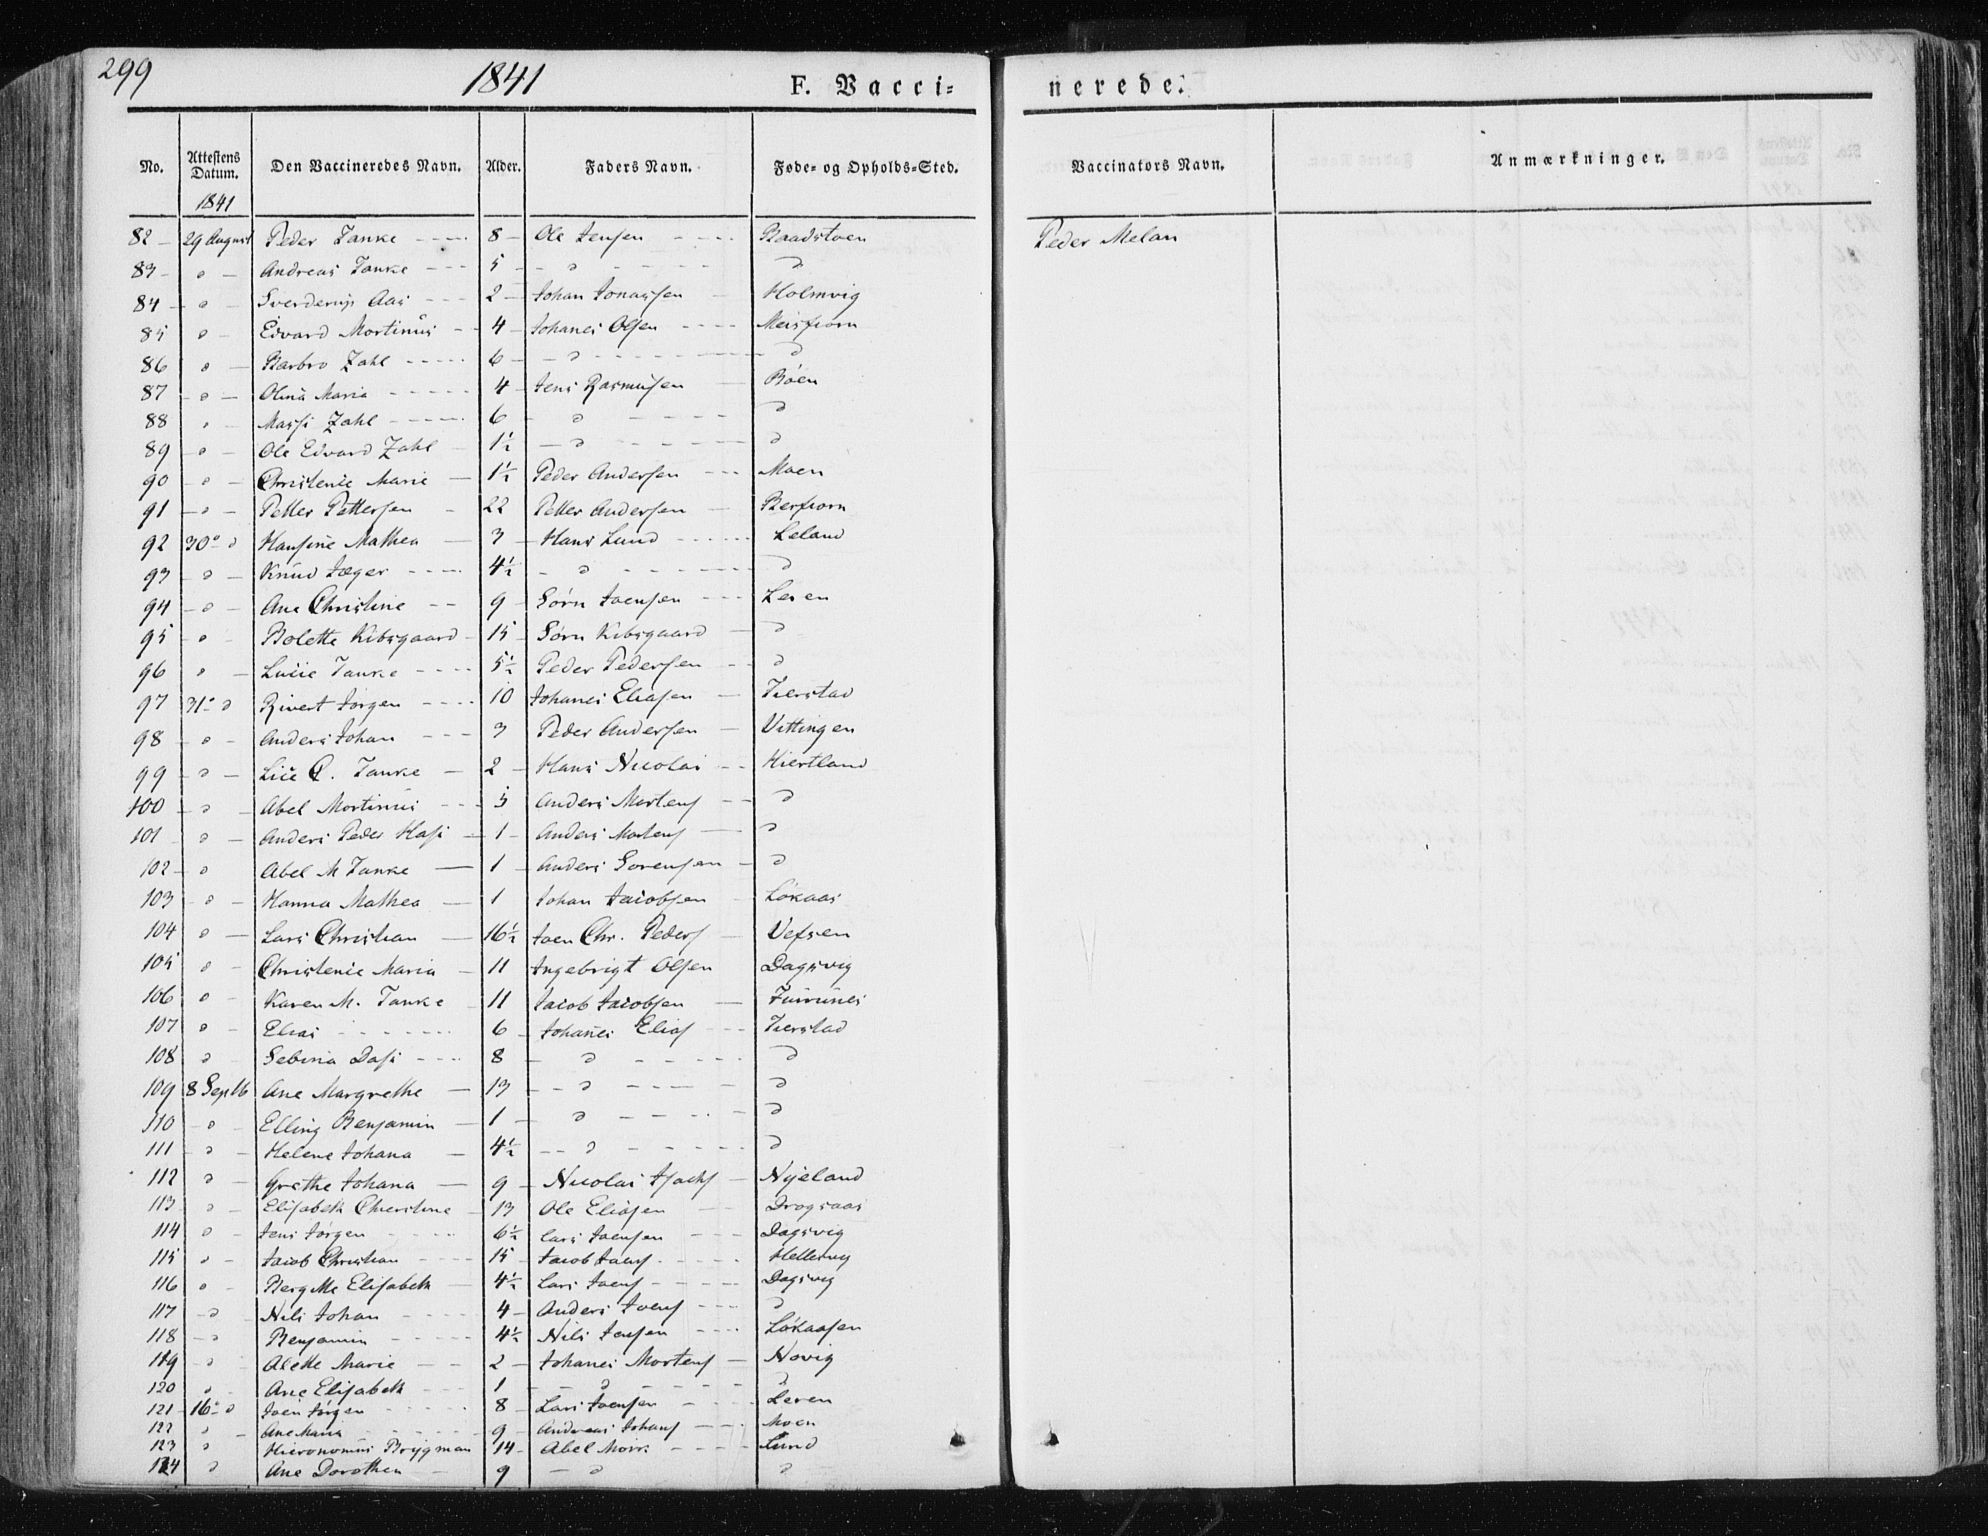 299
1841
F. Vacci=
nerede.
No. Attestens Datum. Den Vaccineredes Navn. Alder. Faders Navn. Føde- og Opholds-Sted. Vaccinators Navn. Anmærkninger.
1841
82 - 29 August Peder Zanke - 8 - Ole Jensen - Baadstoen Peder Melan
83 - " - Andreas Tanke - 5 - " - "
84 - " - Sverderup Aas - 2 - Johan Jonassen - Holmvig
85 " - Edvard Mortinus - 4 - Johanes Olsen - Meisfiorn
86 " - Barbro Zahl - 6 - " - "
87 - " - Olina Maria - 4 - Jens Rasmusen - Bøen
88 " - Massi Zahl - 6 - " - "
89 - " - Ole Edvard Zahl - 1½ - " - "
90 - " - Christenie Marie - 1½ Peder Andersen - Moen
91 - " - Petter Pettersen - 22 Petter Andersen - Berfiorn
92 30° " Hansine Mathea - 3 - Hans Lund - Leland
93 - " - Knud Jæger - 4½ - " - "
94 - " - Ane Christine - 9 - Sørn Joensen - Leren
95 " - Bolette Kibsgaard - 15 - Sørn Kibsgaard - "
96 " - Lucie Tanke - 5½ Peder Pedersen - "
97 31° " Rivert Jørgen - 10 Johanes Eliasen - Tierstad
98 - " - Anders Johan - 3 Peder Andersen - Vittingen
99 - " - Lice C. Tanke - 2 - Hans Nicolai - Hiertland
100 - " - Abel Mortinus - 3 Anders Mortens - "
101 " - Anders Peder Hass - 1 - Anders Mortens - "
102 - " Abel M Tanke - 1 - Anders Sorensen - "
103 - " - Hanna Mathea - 1 Johan Jacobsen - Løkaas
104 " - Lars Christian - 16½ Joen Chr. Peders - Vefsen
105 " Christenie Maria - 11 Ingebrigt Olsen Dagsvig
106 " - Karen M. Tanke - 11 Jacob Jacobsen -
107 " - Elias - 6 - Johanes Elias - Tierstad
108 " - Sebina Dass - 8 - " - "
109 8 Septb Ane Margrethe - 13 - " - "
110 - " - Elling Benjamin - 1 - " - "
111 - " - Helene Johana - 4½ - " - "
112 " - Grethe Johana - 9 - Nicolai Isachs - Nyeland
113 - " - Elisabeth Cherstine - 13 Ole Eliasen - Drogsaas
114 " - Jens Jørgen - 6½ Lars Joensen - Dagsvig
115 " - Jacob Christian - 15 - Jacob Joens - Hellesvig
116 " - Bergitte Elisabeth - 4½ Lars Joens - Dagsvig
117 - " Nils Johan - 4 - Anders Joens - "
118 - " Benjamin - 4½ - Nils Jensen - Løkaasen
119 " Alette Marie - 2 - Johanes Mortens - Novig
120 " - Ane Elisabeth - 1 - " - "
121 - 16° " Joen Jørgen - 8 - Lars Joensen - Leren
122 " - Ane Maria - 9 - Andreas Johans - Moen
123 " Hieronomus Brygman 14 - Abel Moirk - Lund
124 " Ane Dorothea - 9 - " "